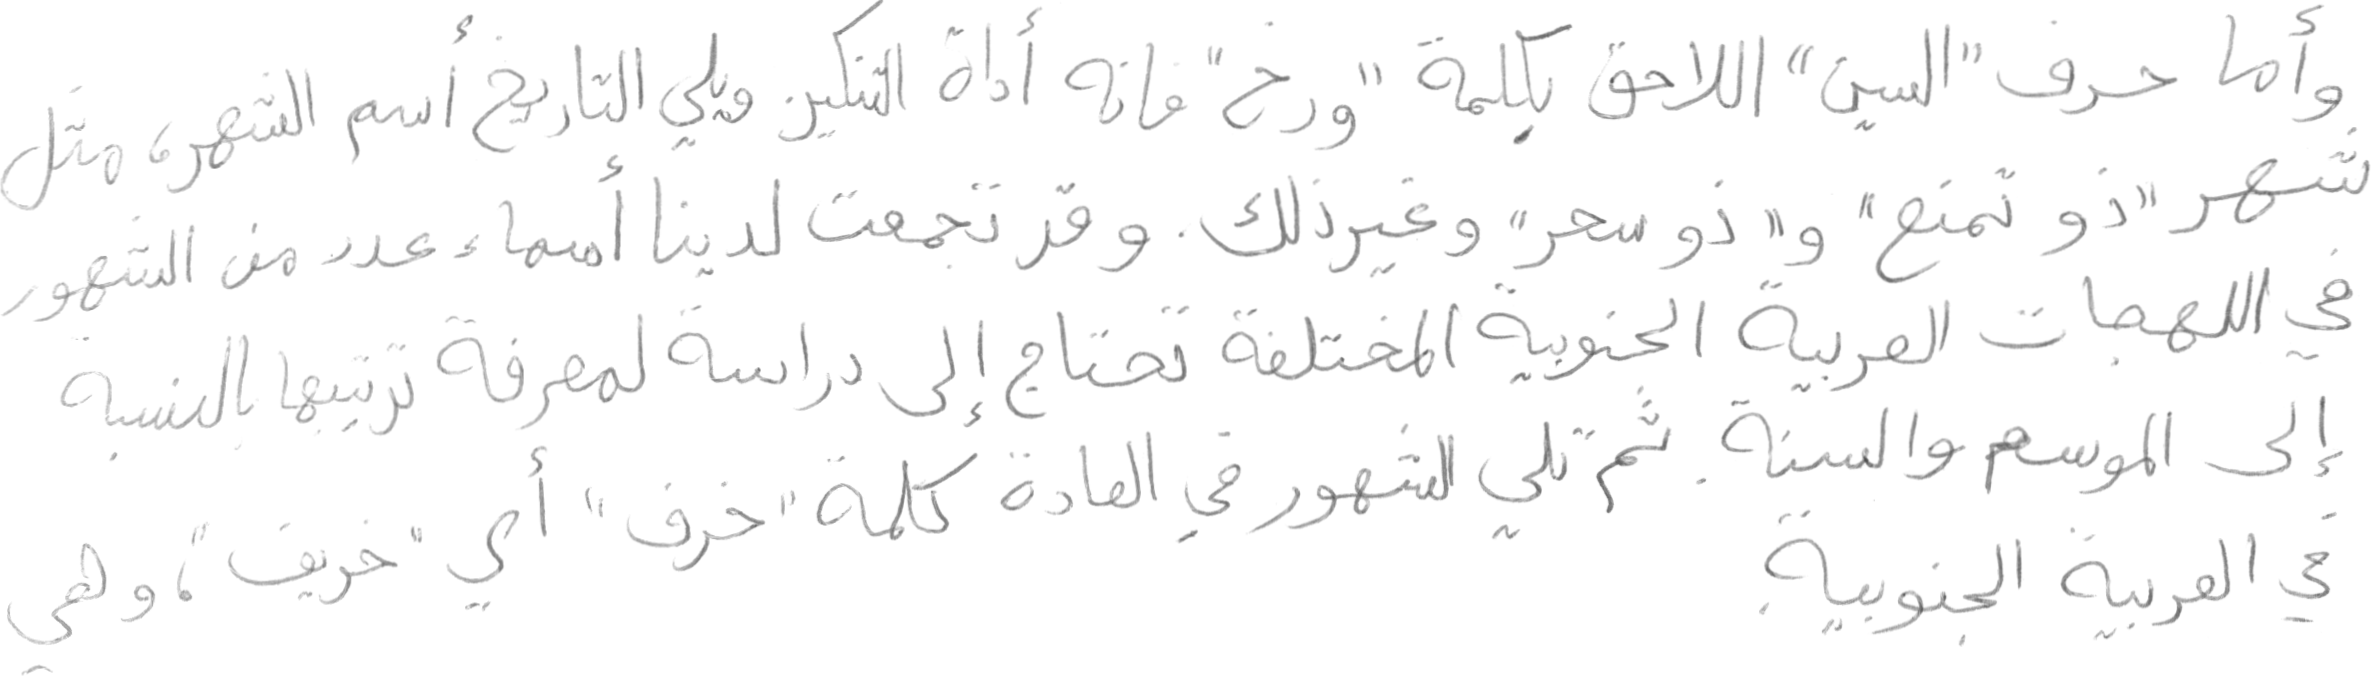 وأما حرف "السين" اللاحق بكلمة "ورخ" فانه أداة التنكير. ويلي التاريخ أسم الشهر، مثل
شهر "ذو تمنع" و"ذو سحر" وغير ذلك. وقد تجمعت لدينا أسماء عدد من الشهور
في اللهجات العربية الجنوبية المختلفة تحتاج إلى دراسة لمعرفة ترتيبها بالنسبة
إلى الموسم والسنة. ثم تلي الشهور في العادة كلمة "خرف" أي "خريف"، وهي
في العربية الجنوبية.